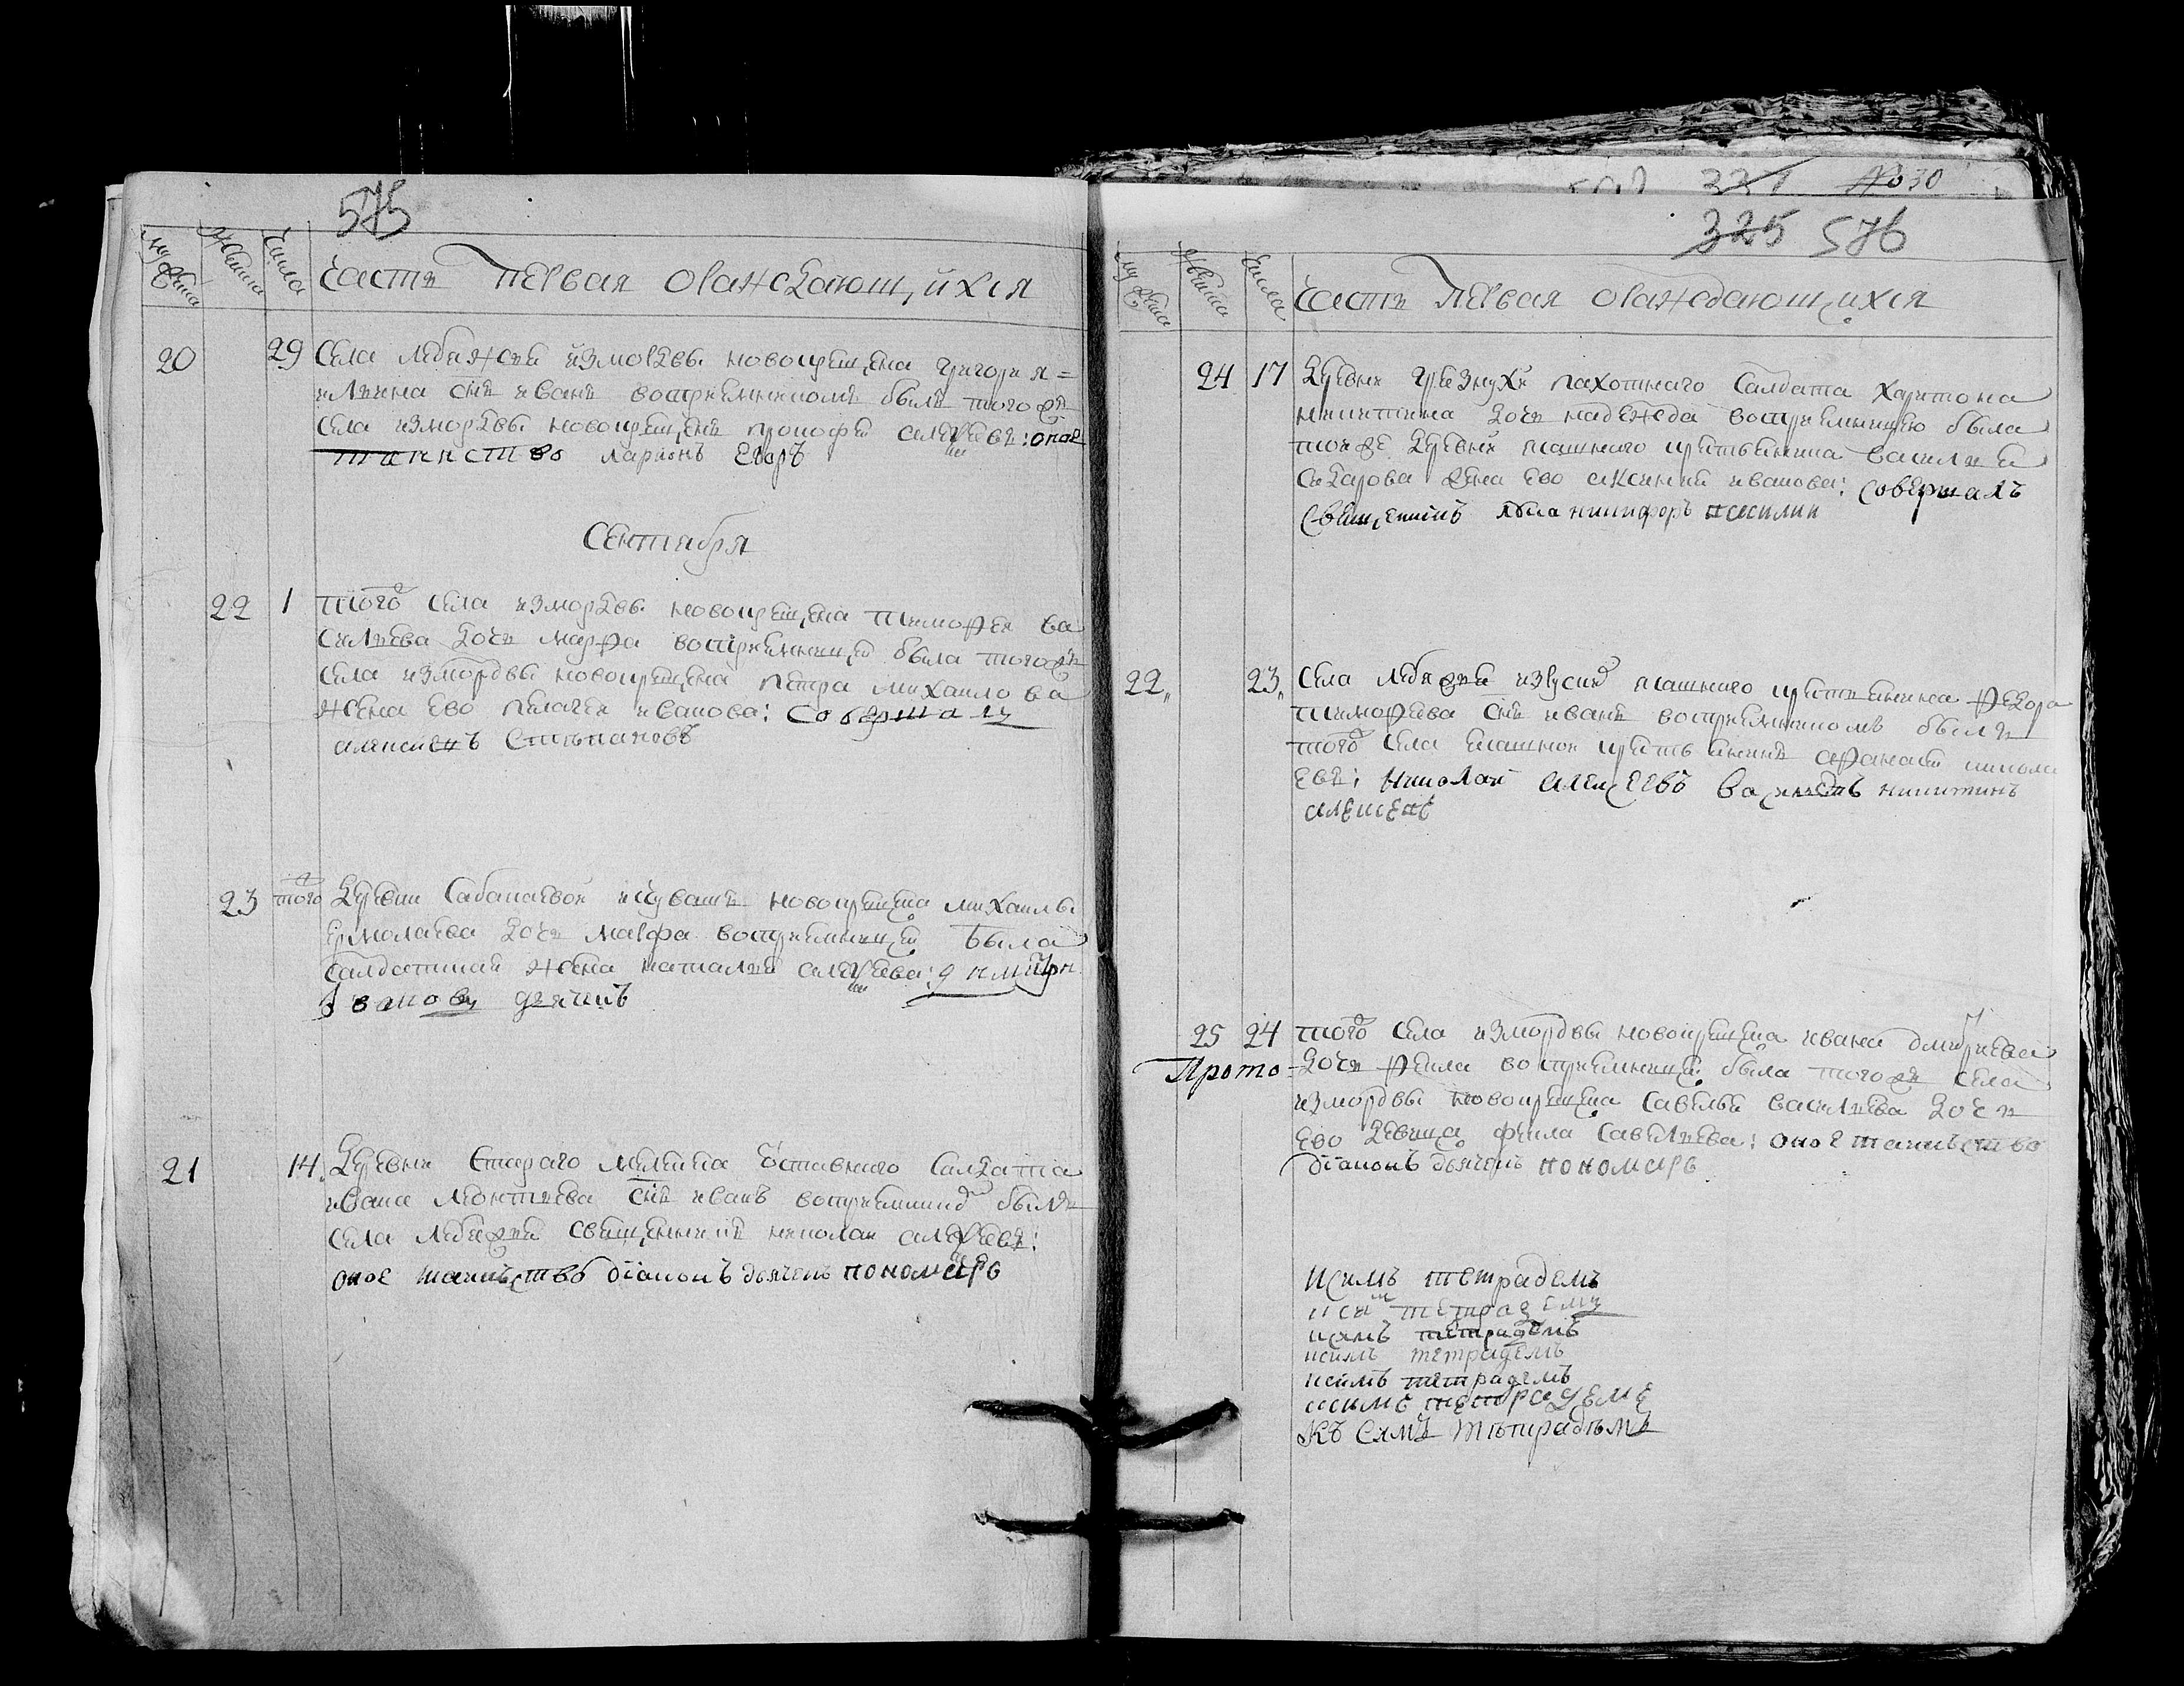 575
муж женска числа
Часть первая ораждающихся
20 29 Села лебяжей измордвы новокрещена григорья
ильина снъ иванъ восприемникомъ былъ тогожъ
села измордвы новокрещенъ прокофей алексеевъ: оное
таинство ларионъ Егоръ
Сентября
22 1 того села измордвы новокрещена тимофея ва
сильева дочь марфа восприемницей была тогожъ
села измордвы новокрещена петра михаилова
жена ево пелагея иванова: совершалъ
алексеецъ степановъ
23 того деревни сабакаевой ичувашъ новокрещена михаилы
ермолаева дочь марфа восприемницей была
салдатская жена наталья алексеева: дмитри
Ивановъ дьячекъ
21 14 Деревни старого мелекеса отставного салдата
ивана леонтьева снъ иванъ восприемникомъ былъ
села лебяжей священникъ николай алексеевъ:
оное таинство діаконъ дьячекъ пономарь
№ 30
325 576
муж женска числа
Часть первая ораждающихся
24 17 Деревни грезнухи пахотнаго салдата харитона
никитина дочь надежда восприемницею была
тоежъ деревни ясашного крестьянина василья
сидарова жена ево аксинья иванова: совершалъ
священникъ никифоръ
22 23 Села лебяжей изрускихъ ясашного крестьянина федора
тимофеева снъ иванъ восприемникомъ былъ
того села ясашной крестьянинъ афанасей никола
евъ: николай алексеевъ никитинъ
алексеевъ
25 24 того села измордвы новокрещена ивана дмитриева
Прото- дочь фекла восприемницей была тогожъ села
измордвы новокрещена савелья васильева дочь
ево девица фекла савельева: оное таинство
діаконъ дьячекъ пономарь
ксимъ тетрадемъ
ксим тетрадемъ
ксимъ тетрадемъ
ксимъ тетрадемъ
ксимъ тетрадемъ
ксимъ тетрадемъ
Къ Симъ тетрадемъ